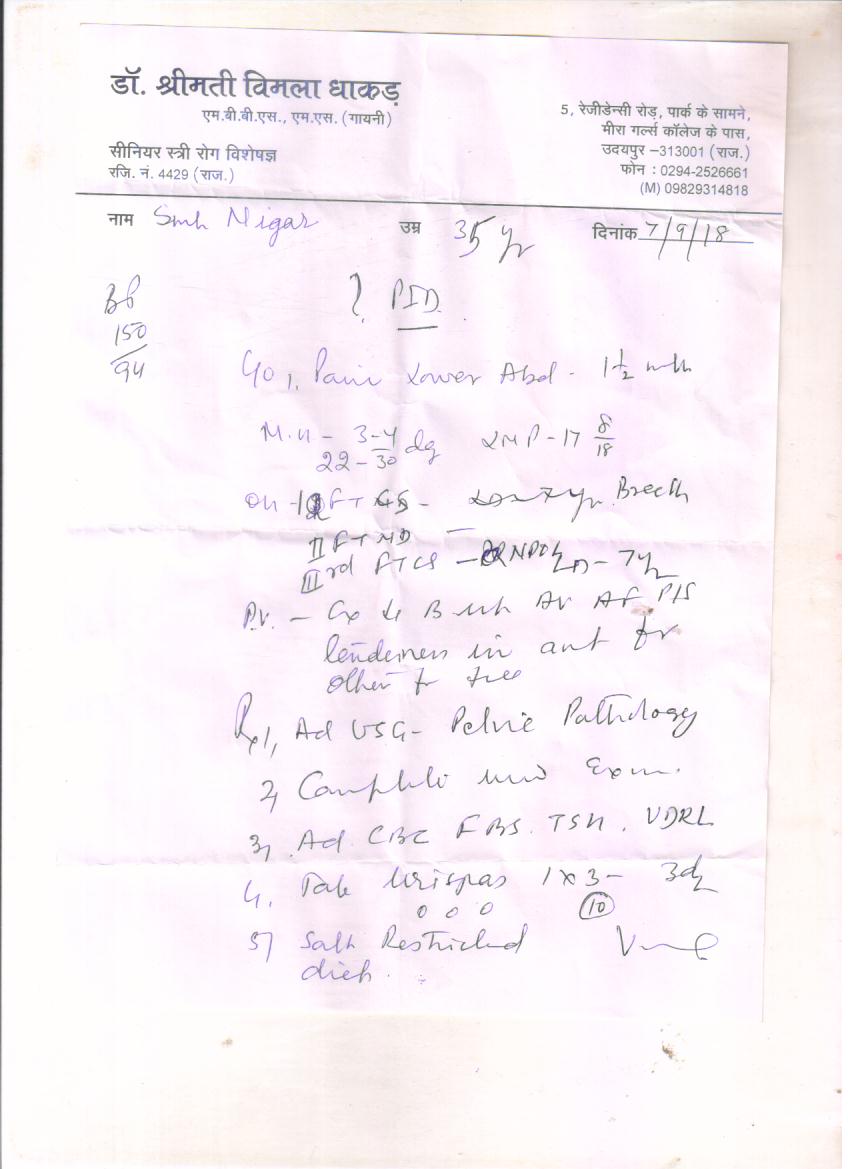 डॉ. श्रीमती विमला धाकड़
एम.बी.बी.एस., एम.एस. (गायनी)
सीनियर स्त्री रोग विशेषज्ञ
रजि. नं. 4429 (राज.)
5, रेजीडेन्सी रोड़, पार्क के सामने,
मीरा गर्ल्स कॉलेज के पास,
उदयपुर –313001 (राज.)
फोन : 0294-2526661
(M) 09829314818
नाम Nigar उम्र 35 yr दिनांक 7/9/18
BP
150
94
? PID
C/o 1, Pain Lower Abd - 1½
M.H - 3-4 / 22-30 dy LMP - 17 8/18
OH - FT Breech
II FTND
III rd FTCS - 7 yr
P.V. - Cx Ut AV AF
tenderness in ant fx
other fx free
Rx 1, Ad USG - Pelvic Pathology
2, Complete Exam.
3, Ad. CBC FBS. TSH. VDRL
4. Tab 1x3 - 3d
0 0 0 (10)
5) Salt Restricted
diet.